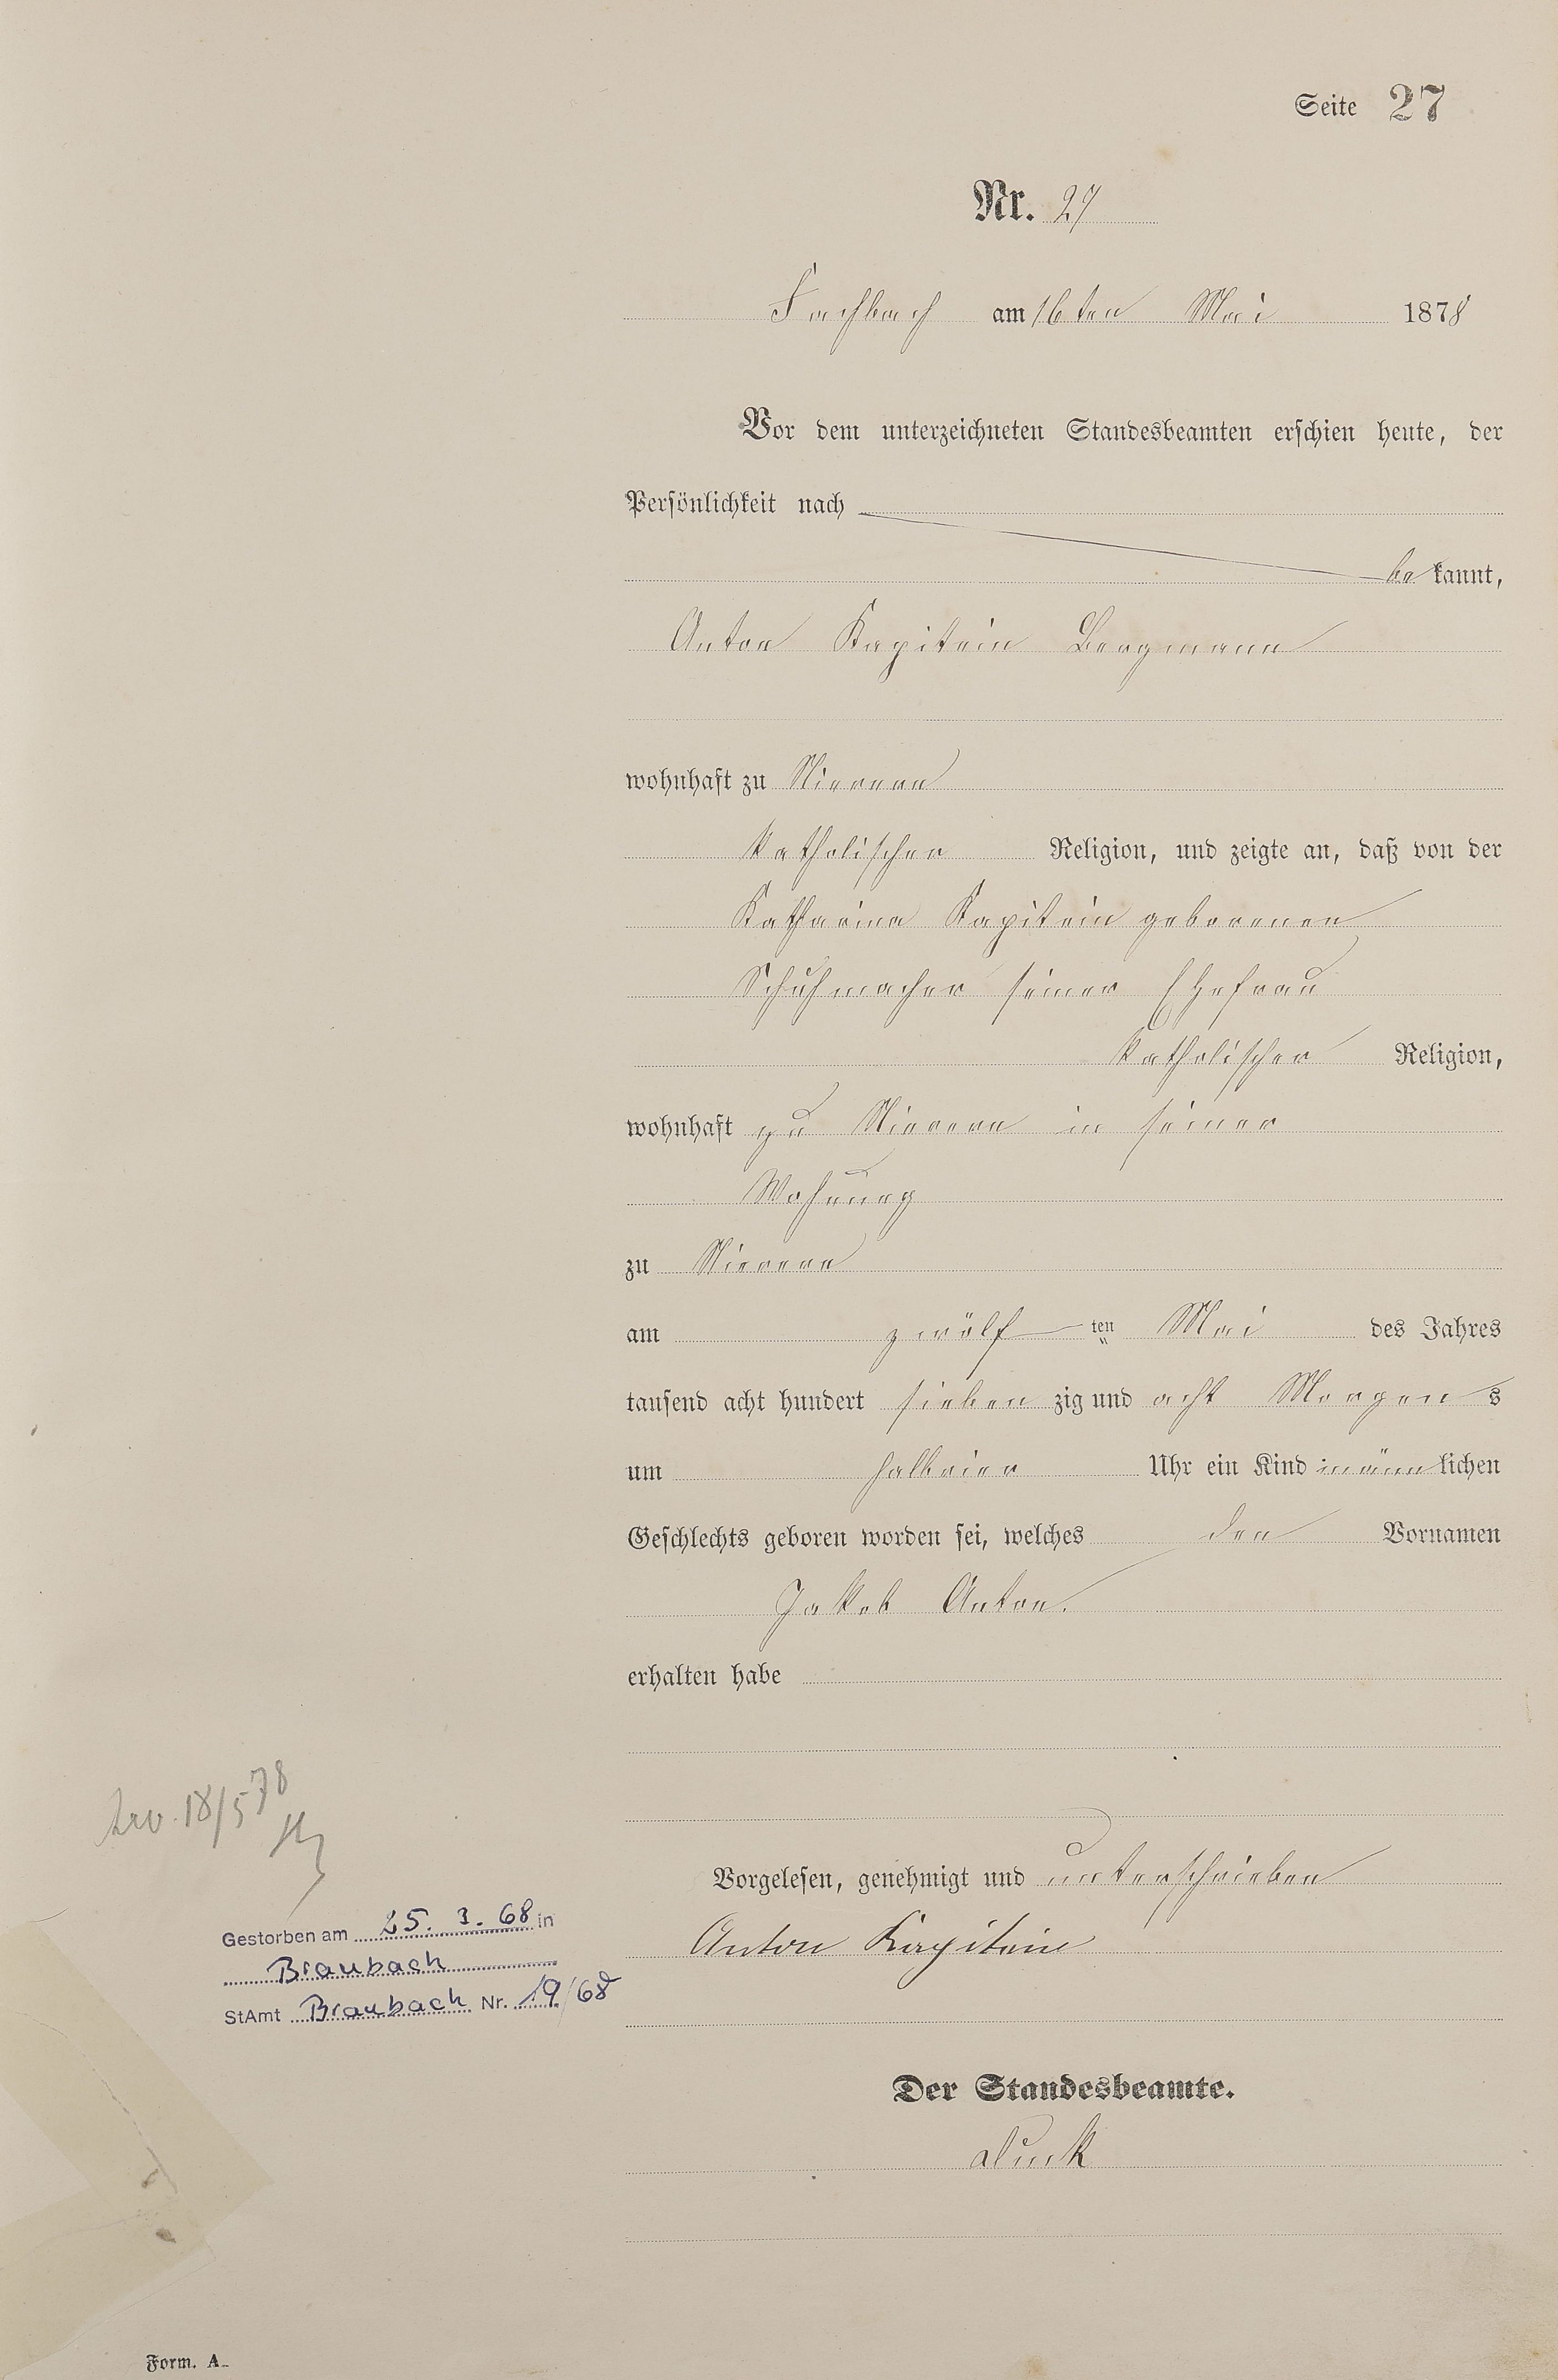 Seite 27
Nr. 27
Fachbach am 16ten Mai 1878
Vor dem unterzeichneten Standesbeamten erschien heute, der
Persönlichkeit nach
be kannt,
Anton Kapitein Bergmann
wohnhaft zu Nievern
katholischer Religion, und zeigte an, daß von der
Katharina Kapitein geborenen
Schuhmacher seiner Ehefrau
katholischer Religion,
wohnhaft zu Nievern in seiner
Wohnung
zu Nievern
am zwölf ten Mai des Jahres
tausend acht hundert sieben zig und acht Morgens
um halbvier Uhr ein Kind männlichen
Geschlechts geboren worden sei, welches den Vornamen
Jakob Anton.
erhalten habe
18/5 78
Vorgelesen, genehmigt und unterschrieben
Anton Kapitein
Gestorben am 25. 3. 68 in
Braubach
StAmt Braubach Nr. 19/68
Der Standesbeamte.
Form. A.